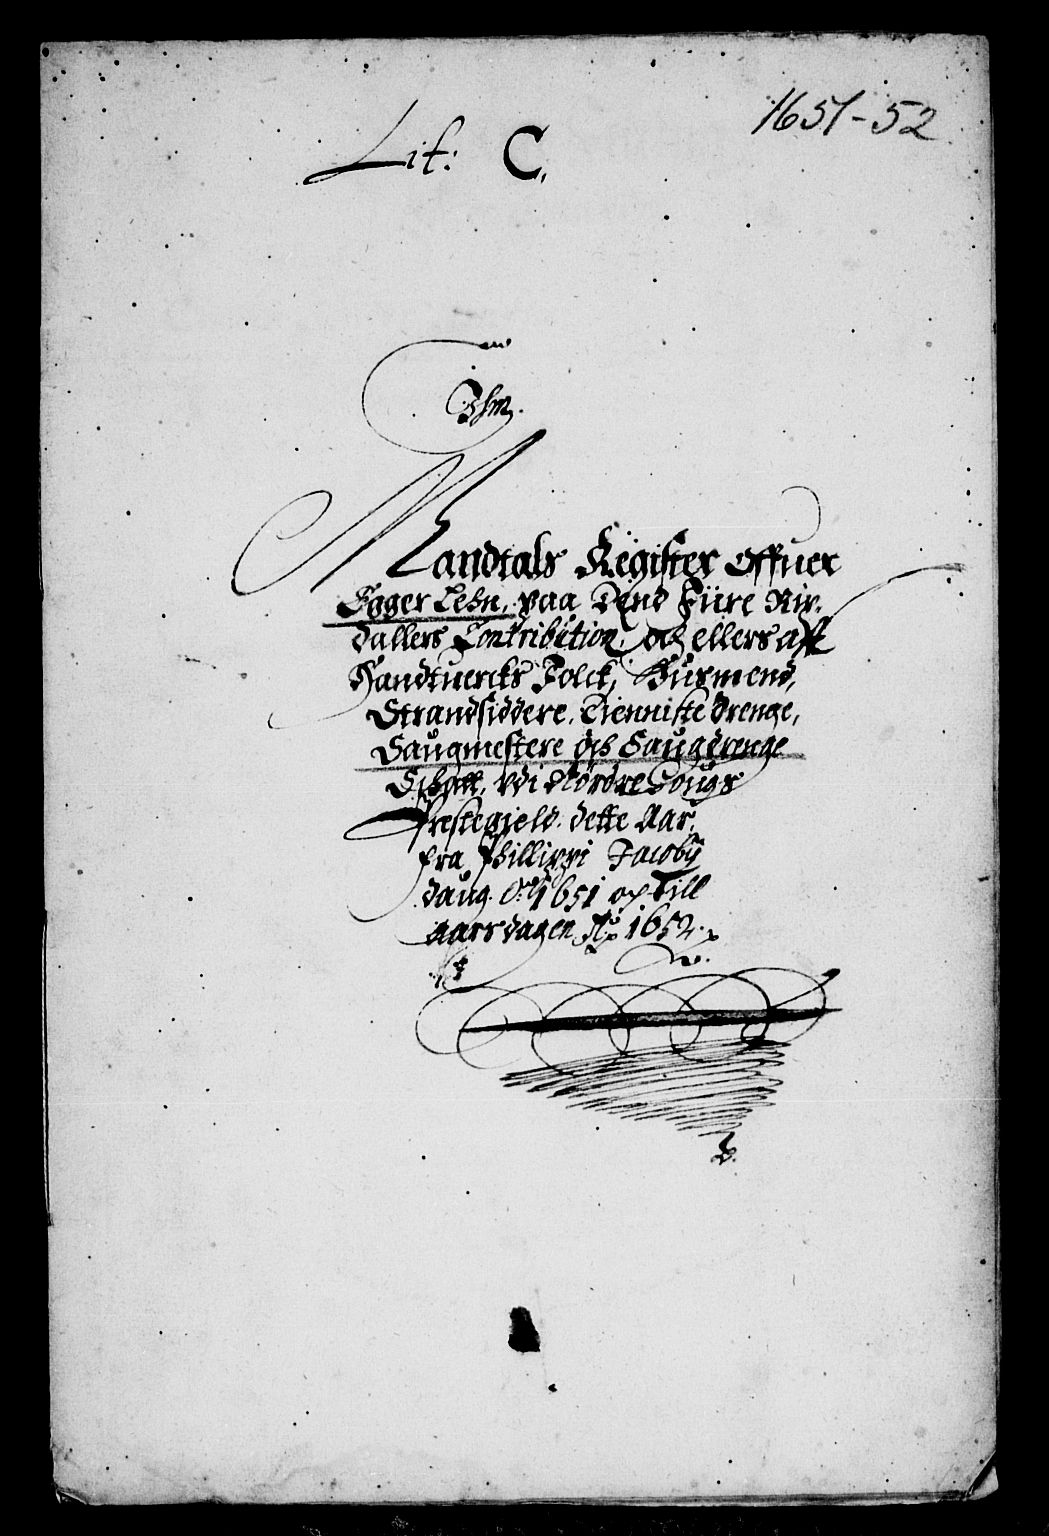 1651-52
Lit: C.
Ihm.
Mandtals Register offuer
Egger Lehn, paa dend Fiire Rix-
dallers Contribution, och ellers aff
Handtuercks Folck, Husmend,
Strandsiddere, Tienniste drenge,
Saugmestere och Saugdrenge
Schatt, vdi Nordre Sougs
Prestegield dette Aar,
fra Phillippi Jacobÿ
daug Ao 1651 op Till
Aarsdagen Ao 1652.